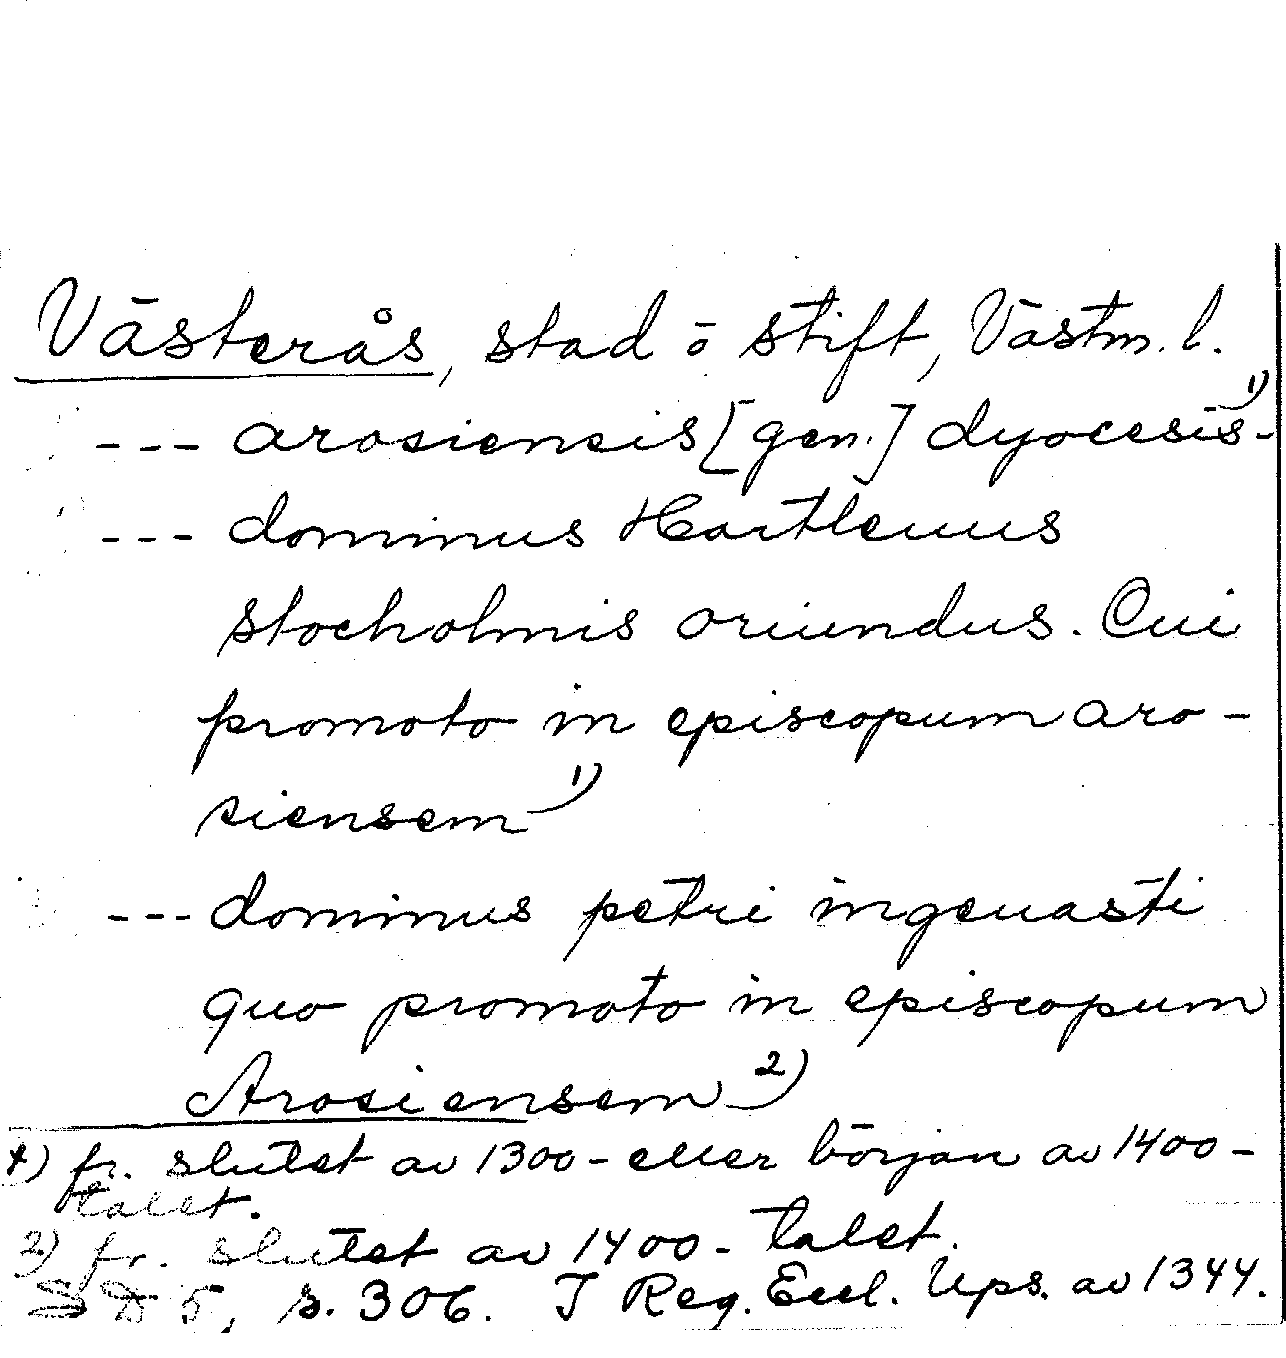 Västerås, stad ō stift, Västm. l.
--- arosiensis [gen.] dyocesis- 1)
--- dominus Hartleuus
stocholmis oriundus. Cui
promoto in episcopum aro-
siensem 1)
--- dominus petri ingeuasti
quo promoto in episcopum
Arosiensem 2)
1) fr. slutet av 1300- eller början av 1400-
talet.
2) fr. slutet av 1400-talet.
SD 5, s. 306. I Reg. Eccl. Ups. av 1344.